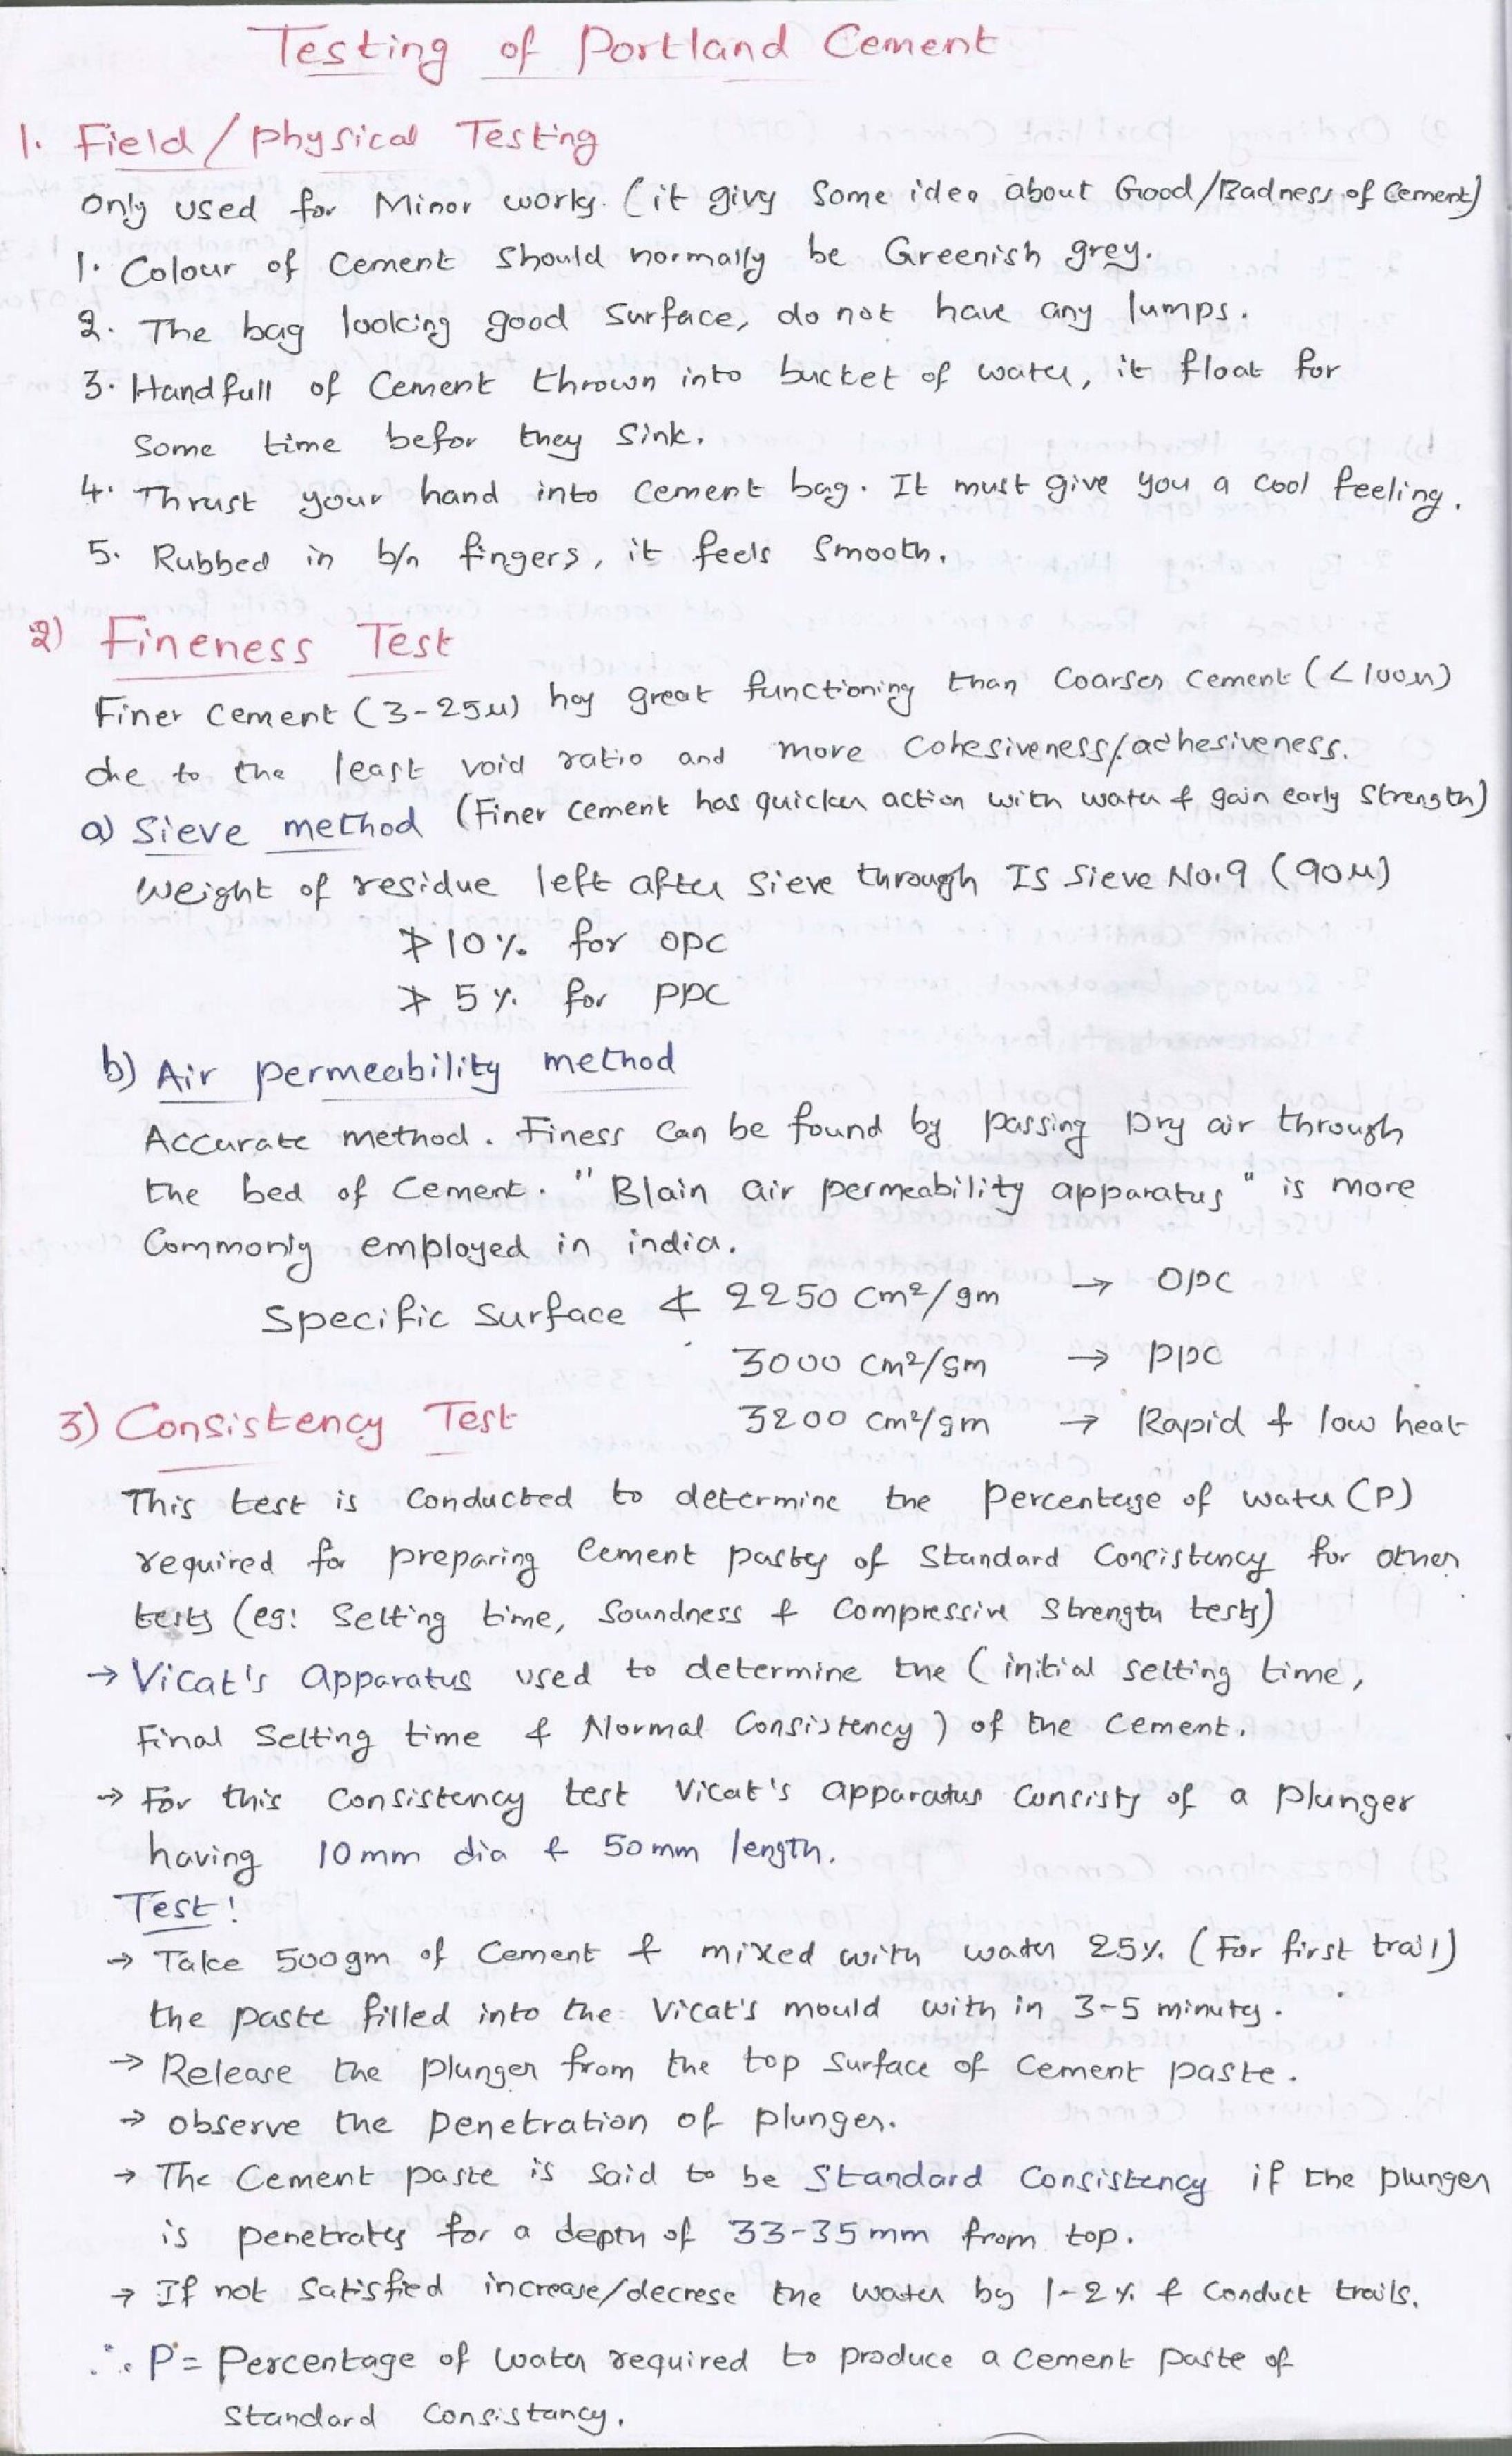 Testing of Portland Cement
1. Field/Physical Testing
Only used for Minor works. (it givs Some idea about Good/Badness of Cement)
1. Colour of Cement Should normally be Greenish grey.
2. The bag looking good Surface, do not have any lumps.
3. Handfull of Cement thrown into bucket of water, it float for
Some time befor they Sink.
4. Thrust your hand into Cement bag. It must give you a Cool feeling.
5. Rubbed in b/n fingers, it feels Smooth.
2) Fineness Test
Finer Cement (3-25μ) has great functioning than Coarser Cement (<100μ)
due to the least void ratio and more Cohesiveness/adhesiveness.
a) Sieve method (Finer cement has quicker action with water & gain early Strength)
Weight of residue left after Sieve through IS Sieve No.9 (90μ)
≯ 10% for OPC
≯ 5% for PPC
b) Air permeability method
Accurate method. Finess Can be found by passing Dry air through
the bed of Cement. "Blain air permeability apparatus" is more
Commonly employed in india.
Specific Surface ≮ 2250 Cm²/gm → OPC
3000 Cm²/gm → PPC
3) Consistency Test 3200 Cm²/gm → Rapid & low heat
This test is Conducted to determine the Percentage of water (P)
required for preparing Cement pastes of Standard Consistency for other
tests (eg: Setting time, Soundness & Compressive Strength tests)
→ Vicat's Apparatus used to determine the (initial setting time,
Final Setting time & Normal Consistency) of the Cement.
→ For this Consistency test Vicat's apparatus Consists of a Plunger
having 10mm dia & 50mm length.
Test:
→ Take 500gm of Cement & mixed with water 25% (For first trail)
the paste filled into the Vicat's mould with in 3-5 minutes.
→ Release the plunger from the top Surface of Cement paste.
→ Observe the Penetration of plunger.
→ The Cement paste is Said to be Standard Consistency if the plunger
is penetrates for a depth of 33-35mm from top.
→ If not Satisfied increase/decrese the water by 1-2% & Conduct trails.
∴ P = Percentage of water required to produce a Cement Paste of
Standard Consistancy.